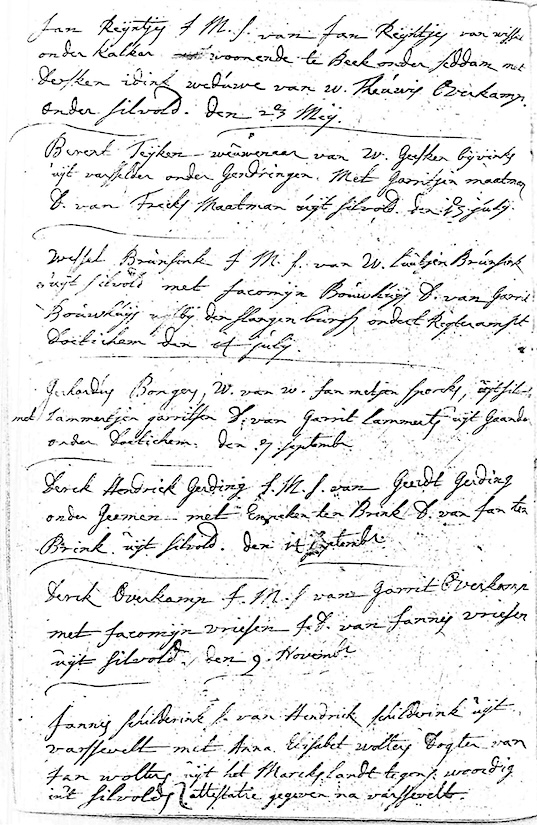 Jan Reijntjes J. M. S. van Jan Reijntjes van wissel
onder Kalkar woonende te Beek onder seddam met
Dersken idink weduwe van w. Theuwis Overkamp
onder silvold. den 23 Meij.
Berent Teijken wewenaar van w. Geesken bijvinks
uijt varsselder onder Gendringen. Met Garritjen maatman
D. van Freeks Maatman uijt silvold. den 13 julij.
Wessel Brunsink J. M. S. van W. Brunsink
uijt silvold met Jacomijn Bouwhuijs D. van Garrit
Bouwhuijs bij den slangenburgh onder t Regterampt
Doetichem den 14 julij.
Gerhardus Bongers, W. van w. Janmetjen uijt silvold
met Lammertjen garritsen D. van Garrit Lammerts uijt Gaanderen
onder Doetichem. den 7 septembr
Derck Hendrick Gerding J. M. S. van Geerdt Gerding
onder Geemen met Enneken ten Brink D. van Jan ten
Brink uijt silvold. den 14 septembr.
Derck Overkamp J. M. S van Garrit Overkamp
met Jacomijn vriesen J. D. van Jannes vriesen
uijt silvold. den 9. Novembr
Jannes schilderink S. van Hendrick schilderink uijt
varssevelt met Anna Elisabet wolters Dogter van
Jan wolters uijt het Marckslandt tegenswoordig
int silvolds attestatie gegeven na varssevelt.